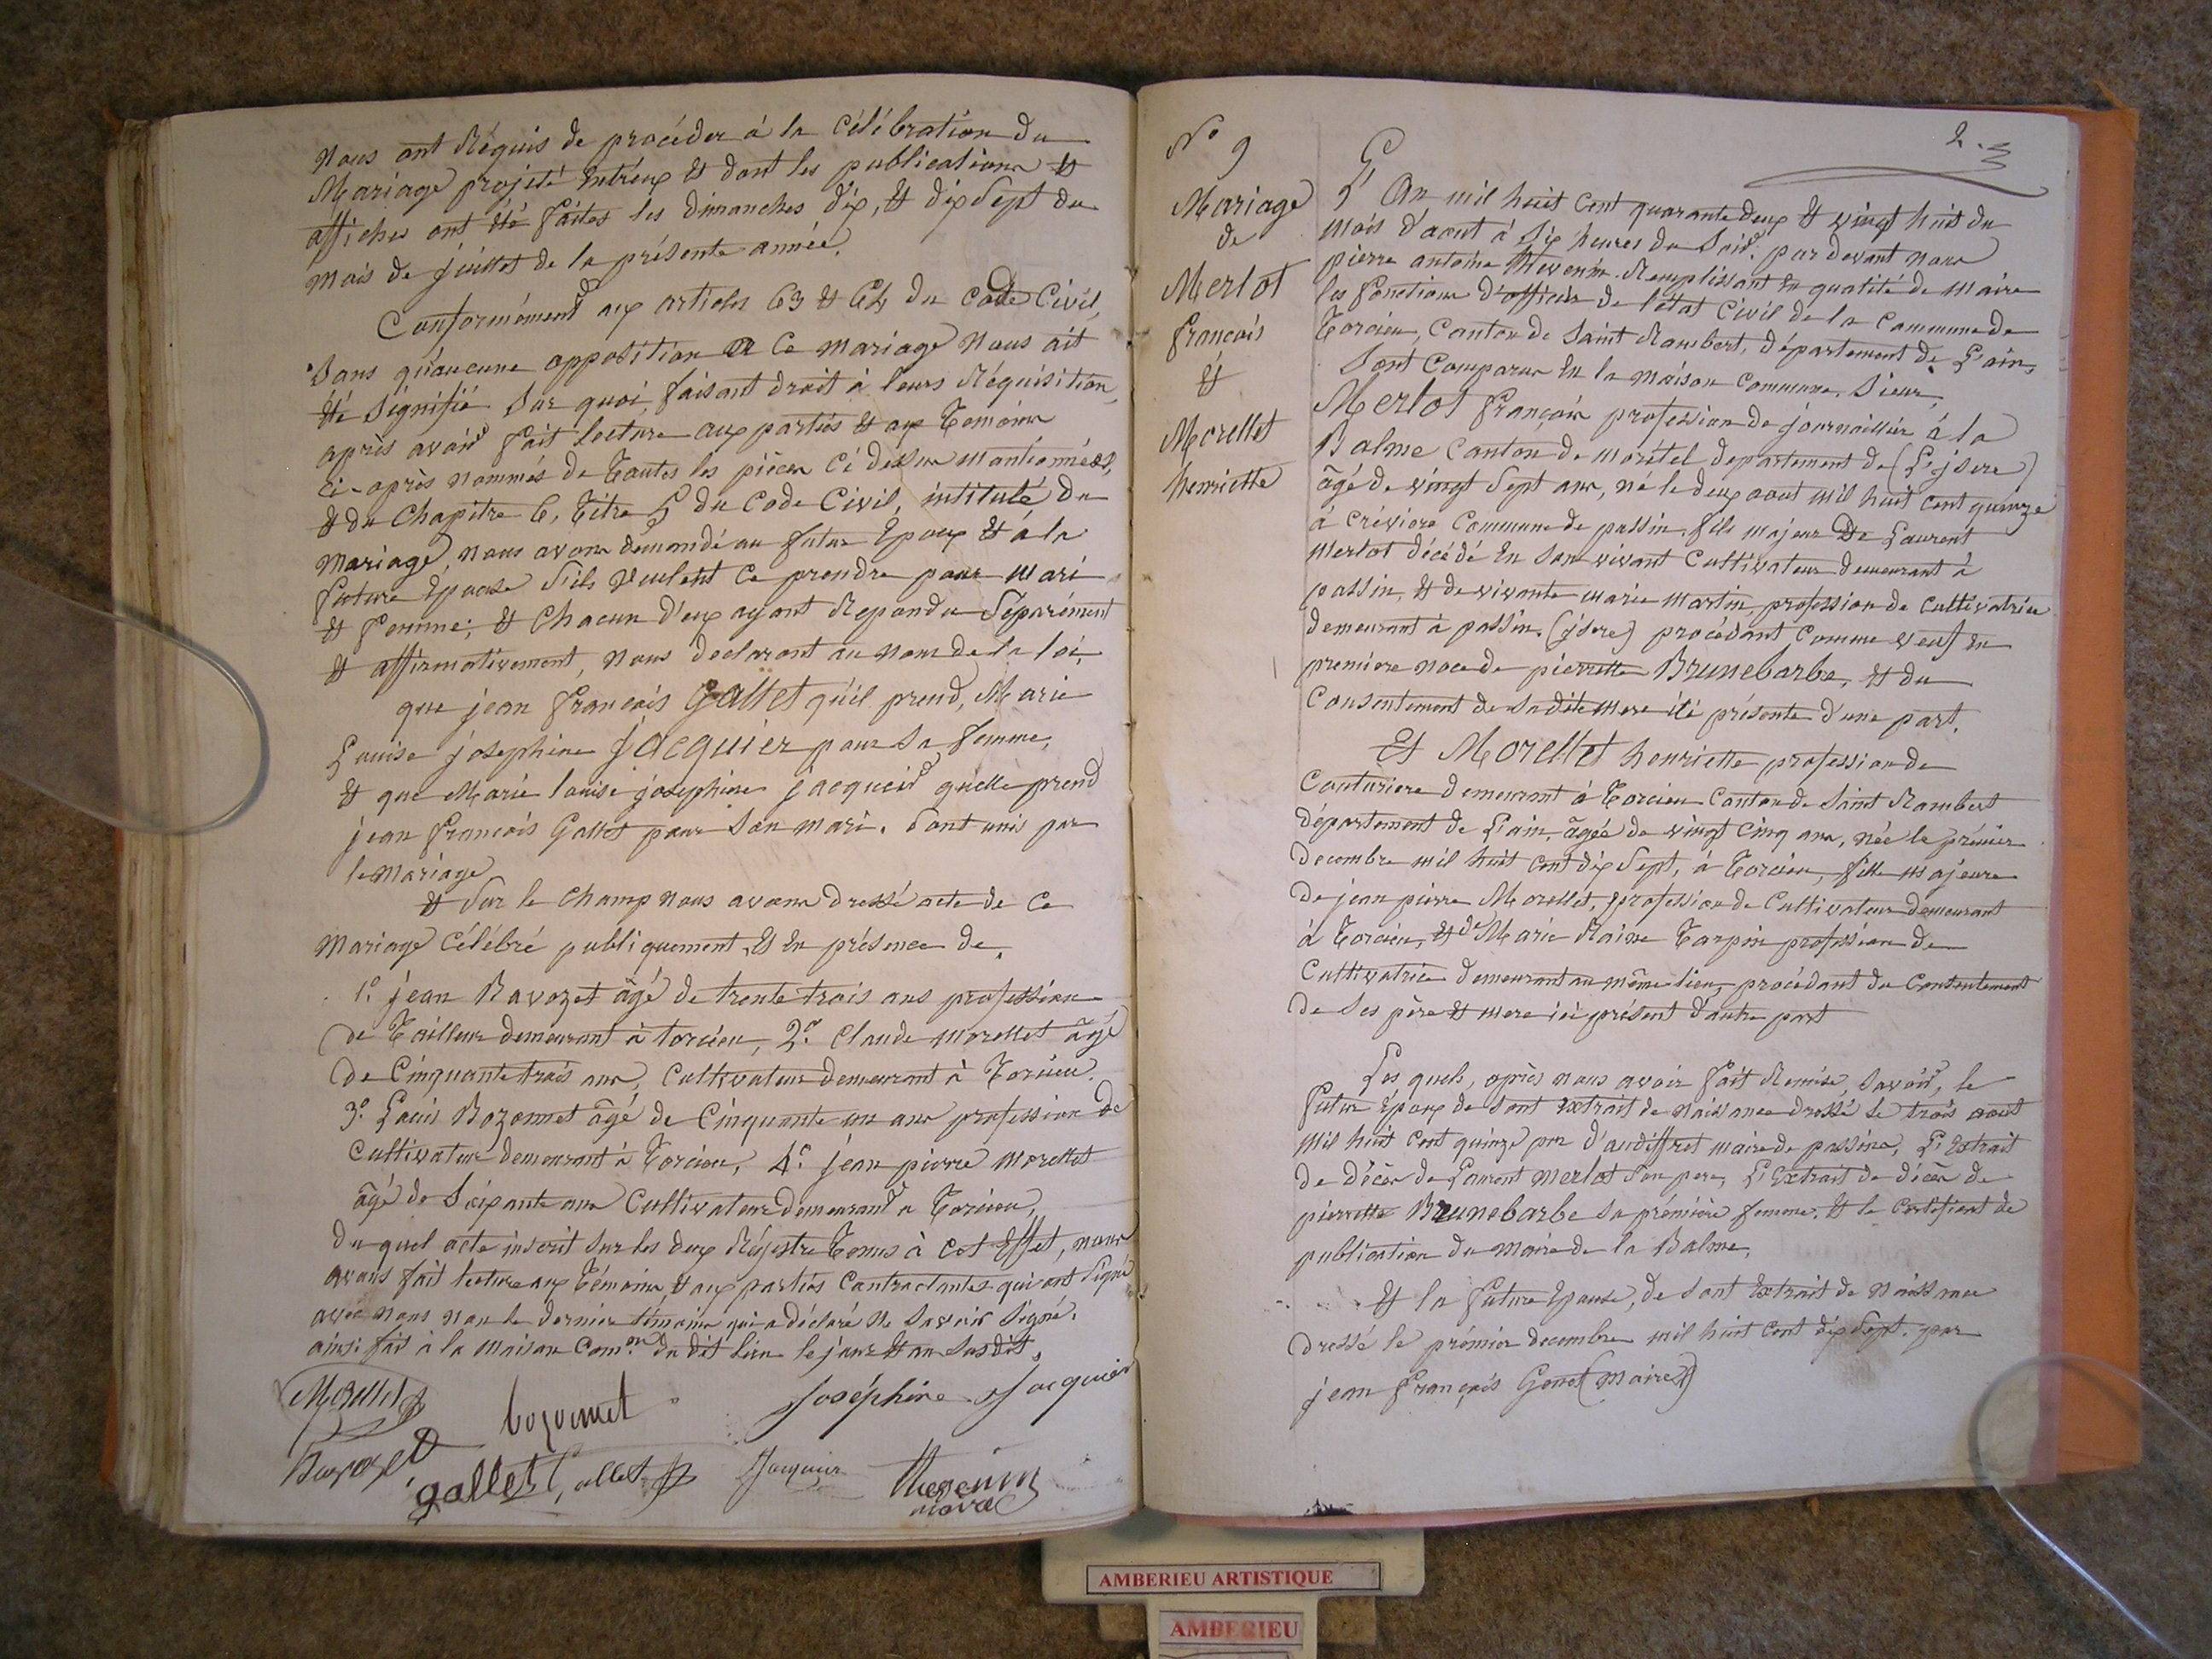 nous ont Réquis de procéder à la célébration du
Mariage projeté entreux et dont les publications et
affiches ont été faites les dimanches dix, et dix Sept du
mois de juillet de la présente année.
Conformément aux articles 63 et 64 du Code Civil,
Sans qu'aucune opposition a Ce mariage Nous ait
été Signifié Sur quoi, faisant droit à leurs Réquisition,
après avoir fait lecture aux parties et aux Temoins
ci-après nommés de toutes les pièces ci dessus mantionnées,
et du Chapitre 6, Titre 5 du Code Civil, intitulé du
Mariage, nous avons demandé au futur Epoux et à la
future Epouse S'ils veulent Ce prendre pour mari
et femme; et Chacun d'eux ayant Repondu Séparément
et affirmativement, nous declaront au nom de la loi,
que jean françois Gallet qu'il prend, Marie
Louise josephine Jacquier pour Sa femme,
et que Marie louise josephine jacqueir quelle prend
jean françois Gallet pour Son mari. Sont unis par
le Mariage
et Sur le Champ Nous avons dressé acte de Ce
Mariage Célébré publiquement, et en présence de,
1º jean Ravozet âgé de trente trois ans profession
de Tailleur demeurant à torcieu, 2º Claude morellet âgé
de Cinquante trois ans, Cultivateur demeurant à Torcieu.
3º Louis Bozonnet âgé de Cinquante un ans profession de
Cultivateur demeurant à Torcieu, 4º jean pierre morellet
âgé de Soixante ans Cultivateur demeurant a Torcieu,
du quel acte inscrit Sur les deux Régistre Tenus à Cet Effet, nous
avons fait lecture aux Témoins, et aux parties Contractantes qui ont Signé
avec nous non le dernier témoins qui a déclaré Ne Savoir Signé.
ainsi fait à la Maison Com.ne du dit lieu le jour et an Susdit.
Morellet
bozonnet
Joséphine Jacquier
Ravozet
gallet Gallet
Jacquier
Thevenin
maire
Nº 9
Mariage
de
Merlot
françois
et
Morellet
henriette
2.
L'An mil huit Cent quarante deux et vingt huit du
mois d'aout à Six heures du Soir. par devant nous
pierre antoine Thevenin. Remplissant en qualité de maire
les fonctions d'officier de l'état Civil de la Commune de
Torcieu, Canton de Saint Rambert, département de L'ain,
Sont Comparus En la maison Commune, Sieur,
Merlot françois profession de journaillier à la
Balme Canton de morétel departement de (L'jsere)
âgé de vingt Sept ans, né le deux aout mil huit Cent quinze
à Créviere Commune de passin. fils majeur De Laurent
Merlot décédé En Son vivant Cultivateur demeurant à
passin, et de vivante marie Martin, profession de Cultivatrice
demeurant à passin. (jsere) procédant Comme veuf en
premiere noce de pierrette Brunebarbe, et du
Consentement de Sadite mere ici présente d'une part.
Et Morellet henriette profession de
Couturiere demeurant à Torcieu Canton de Saint Rambert
département de L'ain, âgée de vingt Cinq ans, née le prémier
decembre mil huit Cent dix Sept, à Torcieu, fille majeure
de jean pierre Morellet, profession de Cultivateur demeurant
à Torcieu, et de Marie Raine Tarpin profession de
Cultivatrice demeurant au même lieu, procédant du Consentement
de Ses père et mere ici présent d'autre part
Les quels, après nous avoir fait Remise, Savoir, le
futur Epoux de Sont Extrait de Naissance dressé le trois aout
mil huit Cent quinze par d'audiffret maire de passins, L'Extrait
de décès de Laurent Merlot Son pere, L'Extrait de décès de
pierrette Brunebarbe Sa prémière femme. Et le Certificat de
publication du Maire de la Balme,
Et la future Epouse, de Sont Extrait de Naissance
dressé le prémier decembre mil huit Cent dix Sept. par
jean françois Genot (Maire)
AMBERIEU ARTISTIQUE
AMBERIEU